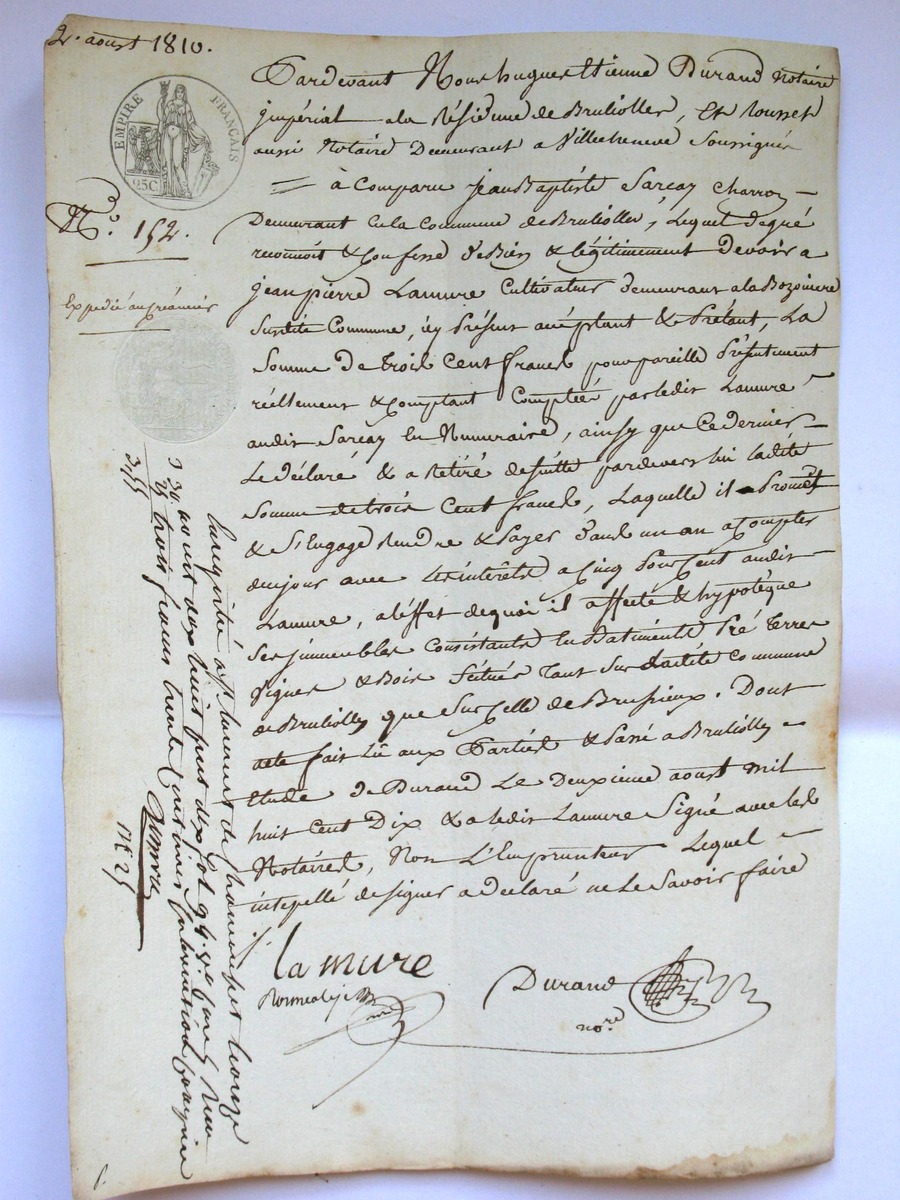 2. aoust 1810.
EMPIRE FRANÇAIS
25C
N.º 152.
Expedié au créancier
Pardevant Nous hugues Etienne Durand Notaire
impérial a la Résidence de Bruliolles, Et Rousset
aussi Notaire Demeurant a Villecheneve Soussignés
à Comparu Jean Baptiste Sarcay Charron
Demeurant en la Commune de Brulioller, Lequel de gré
reconnoit & Confesse de Bien & légitimement Devoir a
jean pierre Lamure Cultivateur demeurant a la Bozoniere
Susdite Commune, icy Présent acceptant & Prétant, La
Somme de trois Cent francs pour pareille Présentement
réellement & Comptant Comptée par ledit Lamure
audit Sarcay En Numeraire, ainsy que Ce dernier
Le déclaré & a Retiré de suitte pardevers lui ladite
Somme de trois Cent francs, Laquelle il Promet
& S'Engage Rendre & Payer dans un an a Compter
du jour avec les intérêts a Cinq Pour Cent audit
Lamure, a l'éffet de quoi il affecte & hypotèque
Ses jmmeubles Consistants En Batiments Pré terres
Vignes & Bois Scitués tant Sur ladite Commune
de Brulioller que Sur Celle de Brussieux. Dont
acte fait Lû aux Parties & Passé a Brulioller
Etude de Durand Le Deuxieme aoust mil
huit Cent Dix & a ledit Lamure Signé avec les
Notaires, Non L'Emprunteur Lequel
intepellé de signer a declaré ne Le Savoir faire
la mure
Durand
no.re
3 30
25
3 55
Enregistré
aoust dix huit cent dix fol 94
trois francs trente centimes Subvention Comprise